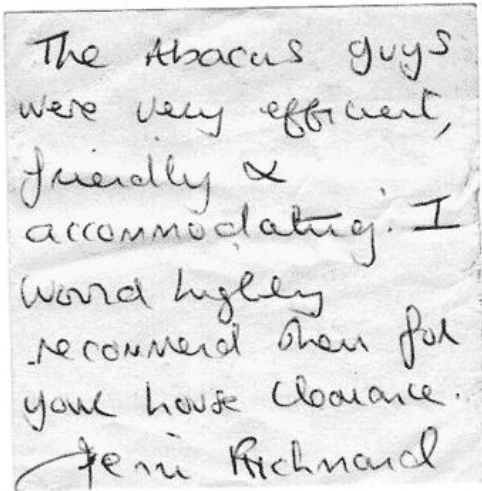 The Abacus guys
were very efficient,
friendly &
accommodating. I
would highly
recommend them for
your house clearance.
Richmond